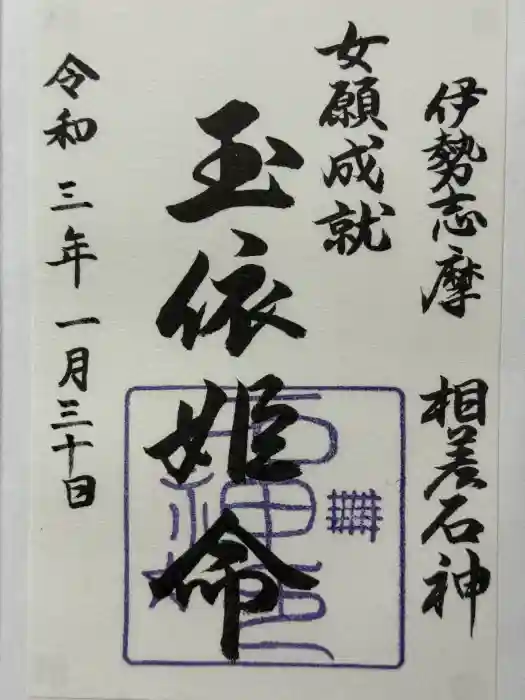 伊勢志摩 相差石神
女願成就
玉依姫命
令和三年一月三十日
石神